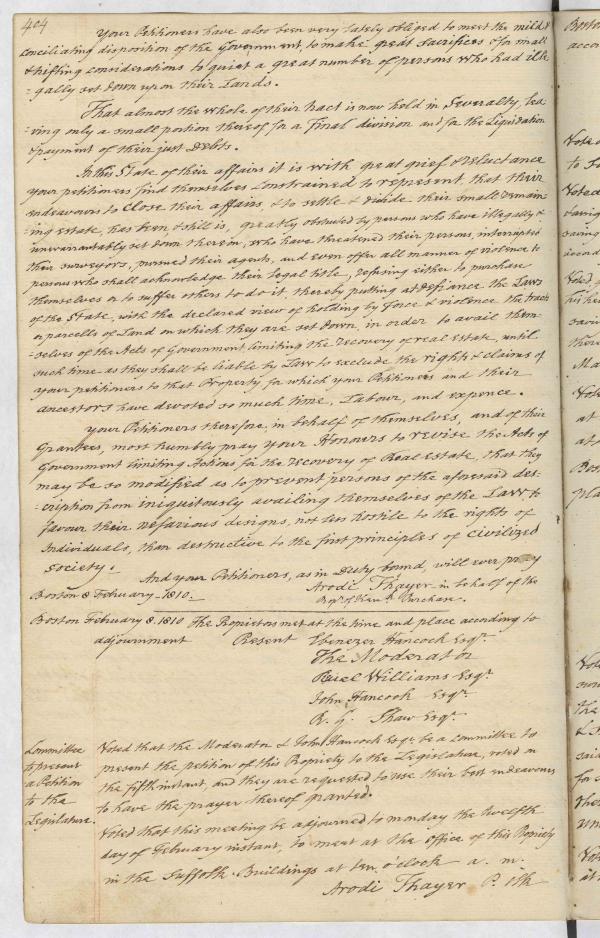 404
Your Petitioners have also been very lately obliged to meet the mild &
conciliating disposition of the Government, to make great sacrifices & for small
& trifling considerations to quiet a great number of persons who had ille
=gally set down upon their Lands.
That almost the whole of their tract is now held in Severalty, lea
=ving only a small portion thereof for a final division and for the Liquidation
& payment of their just Debts.
In this State of their affairs it is with great grief & reluctance
your petitioners find themselves constrained to represent, that their
endeavours to close their affairs, & to settle & divide their small remain-
=ing estate, has been & still is, greatly obstructed by persons who have illegally &
unwarrantably set down therein, who have threatened their persons, interrupted
their surveyors, pursued their agents, and even offer all manner of violence to
persons who shall acknowledge their legal title, refusing either to purchase
themselves or to suffer others to do it, thereby putting at defiance the Laws
of the State, with the declared view of holding by force & violence the tracts
or parcells of Land on which they are set down, in order to avail them-
-selves of the Acts of Government limiting the recovery of real estate, until
such time as they shall be liable by Law to exclude the rights & claims of
your petitioners to that Property, for which your Petitioners and their
ancestors have devoted so much time, Labour, and expence.
Your Petitioners therefore, in behalf of themselves, and of their
Grantees, most humbly pray Your Honours to revise the Acts of
Government limiting Actions for the recovery of Real estate, that they
may be so modified as to prevent persons of the aforesaid des-
=cription from iniquitously availing themselves of the Law to
favour their nefarious designs, not less hostile to the rights of
Individuals, than destructive to the first principles of civilized
society.
And your Petitioners, as in Duty bound, will ever pray
Boston 8 February 1810.
Arodi Thayer in behalf of the
Prop.rs of Ken. Purchase.
Boston February 8. 1810 The Propietors met at the time and place according to
adjournment Present Ebenezer Hancock Esqr.
The Moderator
Ruel Williams Esqr.
John Hancock Esqr.
R. G. Shaw Esqr.
Committee
to present
a Petition
to the
Legislature.
Voted that the Moderator & John Hancock Esqr. be a Committee to
present the petition of this Propriety to the Legislature, voted on
the fifth instant, and they are requested to use their best endeavours
to have the prayer thereof granted.
Voted that this meeting be adjourned to monday the Twelfth
day of February instant, to meet at the Office of this Propriety
in the Suffolk Buildings at ten o'clock a. m.
Arodi Thayer P. Clk